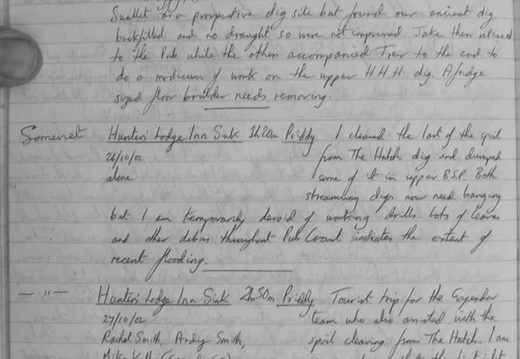 Swallet as a prospective dig site but found our ancient dig
backfilled and no draught so were not impressed. Jake then retired
to the Pub while the others accompanied Trev to the end to
do a modicum of work on the upper H.H.H dig. A fridge
sized floor boulder needs removing.
Somerset Hunters' Lodge Inn Sink 1h20m Priddy I cleared the last of the spoil
26/10/02 from The Hatch dig and dumped
alone some of it in upper B.S.P. Both
streamway digs now need banging
but I am temporarily devoid of working drills. Lots of leaves
and other debris throughout Pub Crawl indicates the extent of
recent flooding.
— " — Hunters' Lodge Inn Sink 2h50m Priddy Tourist trip for the
27/10/02 team who also assisted with the
Rachel Smith, Andy Smith, spoil clearing from The Hatch. I am